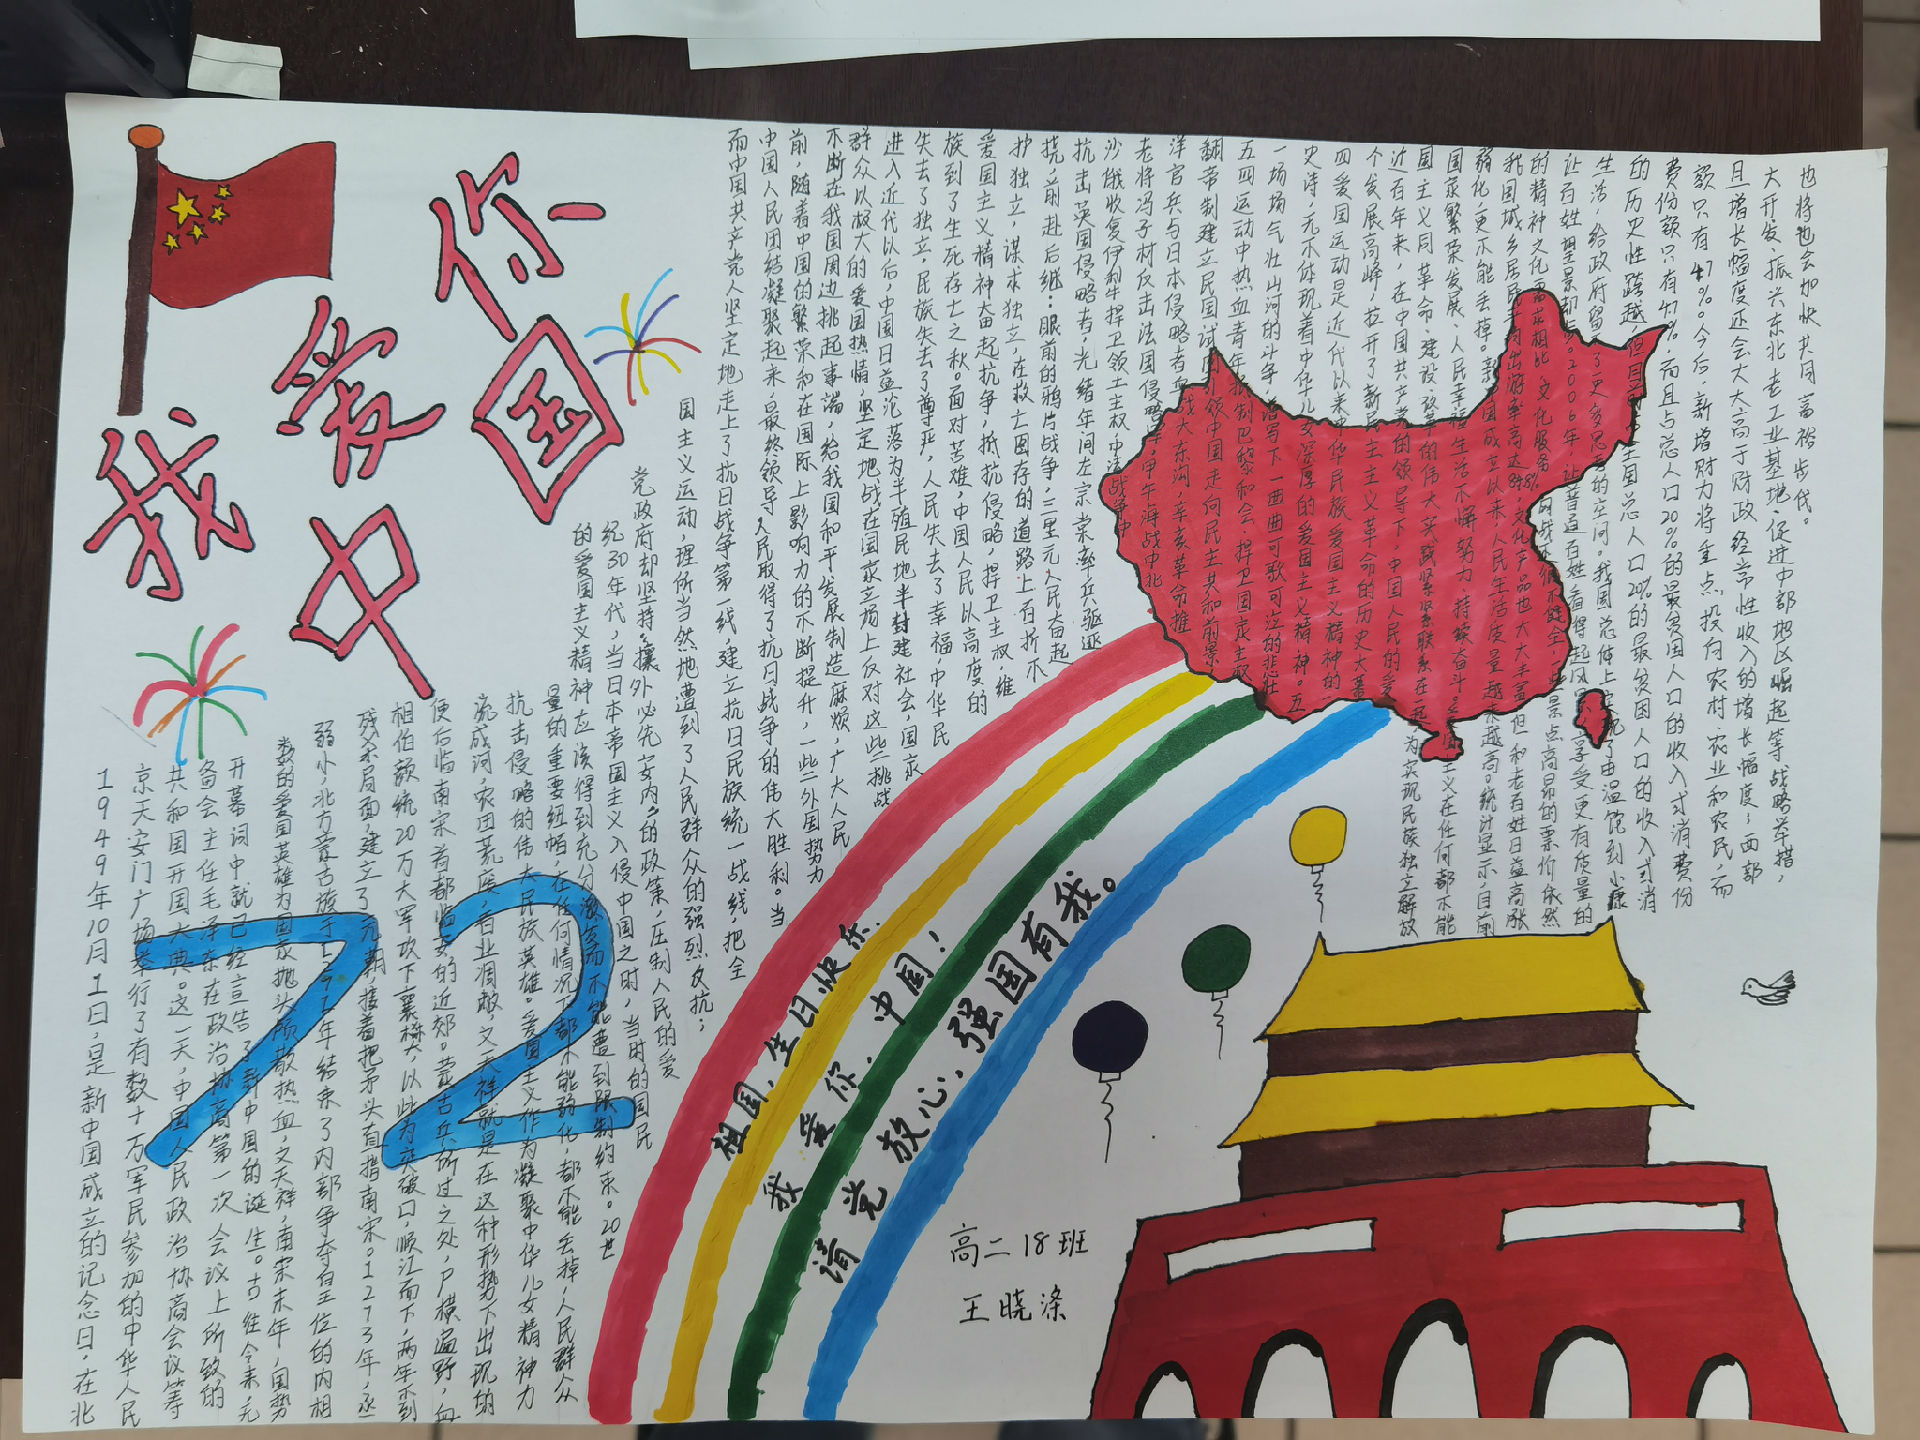 我爱你
中国
72
1949年10月1日,是新中国成立的记念日,在北
京天安门广场举行了有数十万军民参加的中华人民
共和国开国大典。这一天,中国人民政治协商会议筹
备会主任毛泽东在政治协商第一次会议上所致的
开幕词中就已经宣告了新中国的诞生。古往今来,无
数的爱国英雄为国家抛头颅散热血,文天祥,南宋末年,国势
弱小,北方蒙古族于1271年结束了内部争夺皇王位的内相
残杀局面,建立了元朝,接着把矛头直指南宋。1273年,丞
相伯颜统20万大军攻下襄樊,以此为突破口,顺江而下,两年不到
便后临南宋首都临安的近郊。蒙古兵所过之处,尸横遍野,血
流成河,农田荒废,百业凋敝,文天祥就是在这种形势下出现的
抗击侵略的伟大民族英雄。爱国主义作为凝聚中华儿女精神力
量的重要纽带,在任何情况下都不能弱化,都不能丢掉,人民群众
的爱国主义精神应该得到充分激发而不能遭到限制约束。20世
纪30年代,当日本帝国主义入侵中国之时,当时的国民
党政府却坚持"攘外必先安内"的政策,压制人民的爱
国主义运动,理所当然地遭到了人民群众的强烈反抗;
而中国共产党人坚定地走上了抗日战争第一线,建立抗日民族统一战线,把全
中国人民团结凝聚起来,最终领导人民取得了抗日战争的伟大胜利。当
前,随着中国的繁荣和在国际上影响力的不断提升,一些外国势力
不断在我国周边挑起事端,给我国和平发展制造麻烦,广大人民
群众以极大的爱国热情,坚定地战在国家立场上反对这些挑战
进入近代以后,中国日益沦落为半殖民地半封建社会,国家
失去了独立,民族失去了尊严,人民失去了幸福,中华民
族到了生死存亡之秋。面对苦难,中国人民以高度的
爱国主义精神奋起抗争,抵抗侵略,捍卫主权,维
护独立,谋求独立,在救亡图存的道路上百折不
挠,前赴后继:眼前的鸦片战争,三里元人民奋起
抗击英国侵略者,光绪年间左宗棠率兵驱逐
沙俄收复伊犁捍卫领土主权中法战争中
老将冯子材反击法国侵略军,甲午海战中北
洋官兵与日本侵略者血战大东沟,辛亥革命推
翻帝制建立民国试图引领中国走向民主共和前景,
五四运动中热血青年抵制巴黎和会,捍卫国家主权
一场场气壮山河的斗争,谱写下一曲曲可歌可泣的悲壮
史诗,无不体现着中华儿女深厚的爱国主义精神。五
四爱国运动是近代以来中华民族爱国主义精神的
个发展高峰,拉开了新民主主义革命的历史大幕
近百年来,在中国共产党的领导下,中国人民的爱
国主义同革命、建设、改革的伟大实践紧紧联系在一起为实现民族独立解放
国家繁荣发展、人民幸福生活不懈努力,持续奋斗。主义在任何都不能
弱化,更不能丢掉。新中国成立以来人民生活质量越来越高。统计显示,目前
我国城乡居民年均出游率高达84.8%,文化产品也大大丰富但和老百姓日益高涨
的精神文化需求相比,文化服务一些景点高昂的票价依然
让百姓望景却步。2006年,让普通百姓看得起享受更有质量的
生活,给政府留了更多思考的空间。我国总体上实现了由温饱到小康
的历史性跨越,但目前全国总人口20%的最贫困人口的收入或消
费份额只有4.7%,而且占总人口20%的最贫困人口的收入或消费份
额只有4.7%。今后,新增财力将重点投向农村、农业和农民,而
且增长幅度还会大大高于财政经常性收入的增长幅度;西部
大开发、振兴东北老工业基地、促进中部地区崛起等战略举措,
也将也会加快共同富裕步伐。
祖国,生日快乐.
我爱你.中国!
请党放心,强国有我。
高二18班
王晓涤